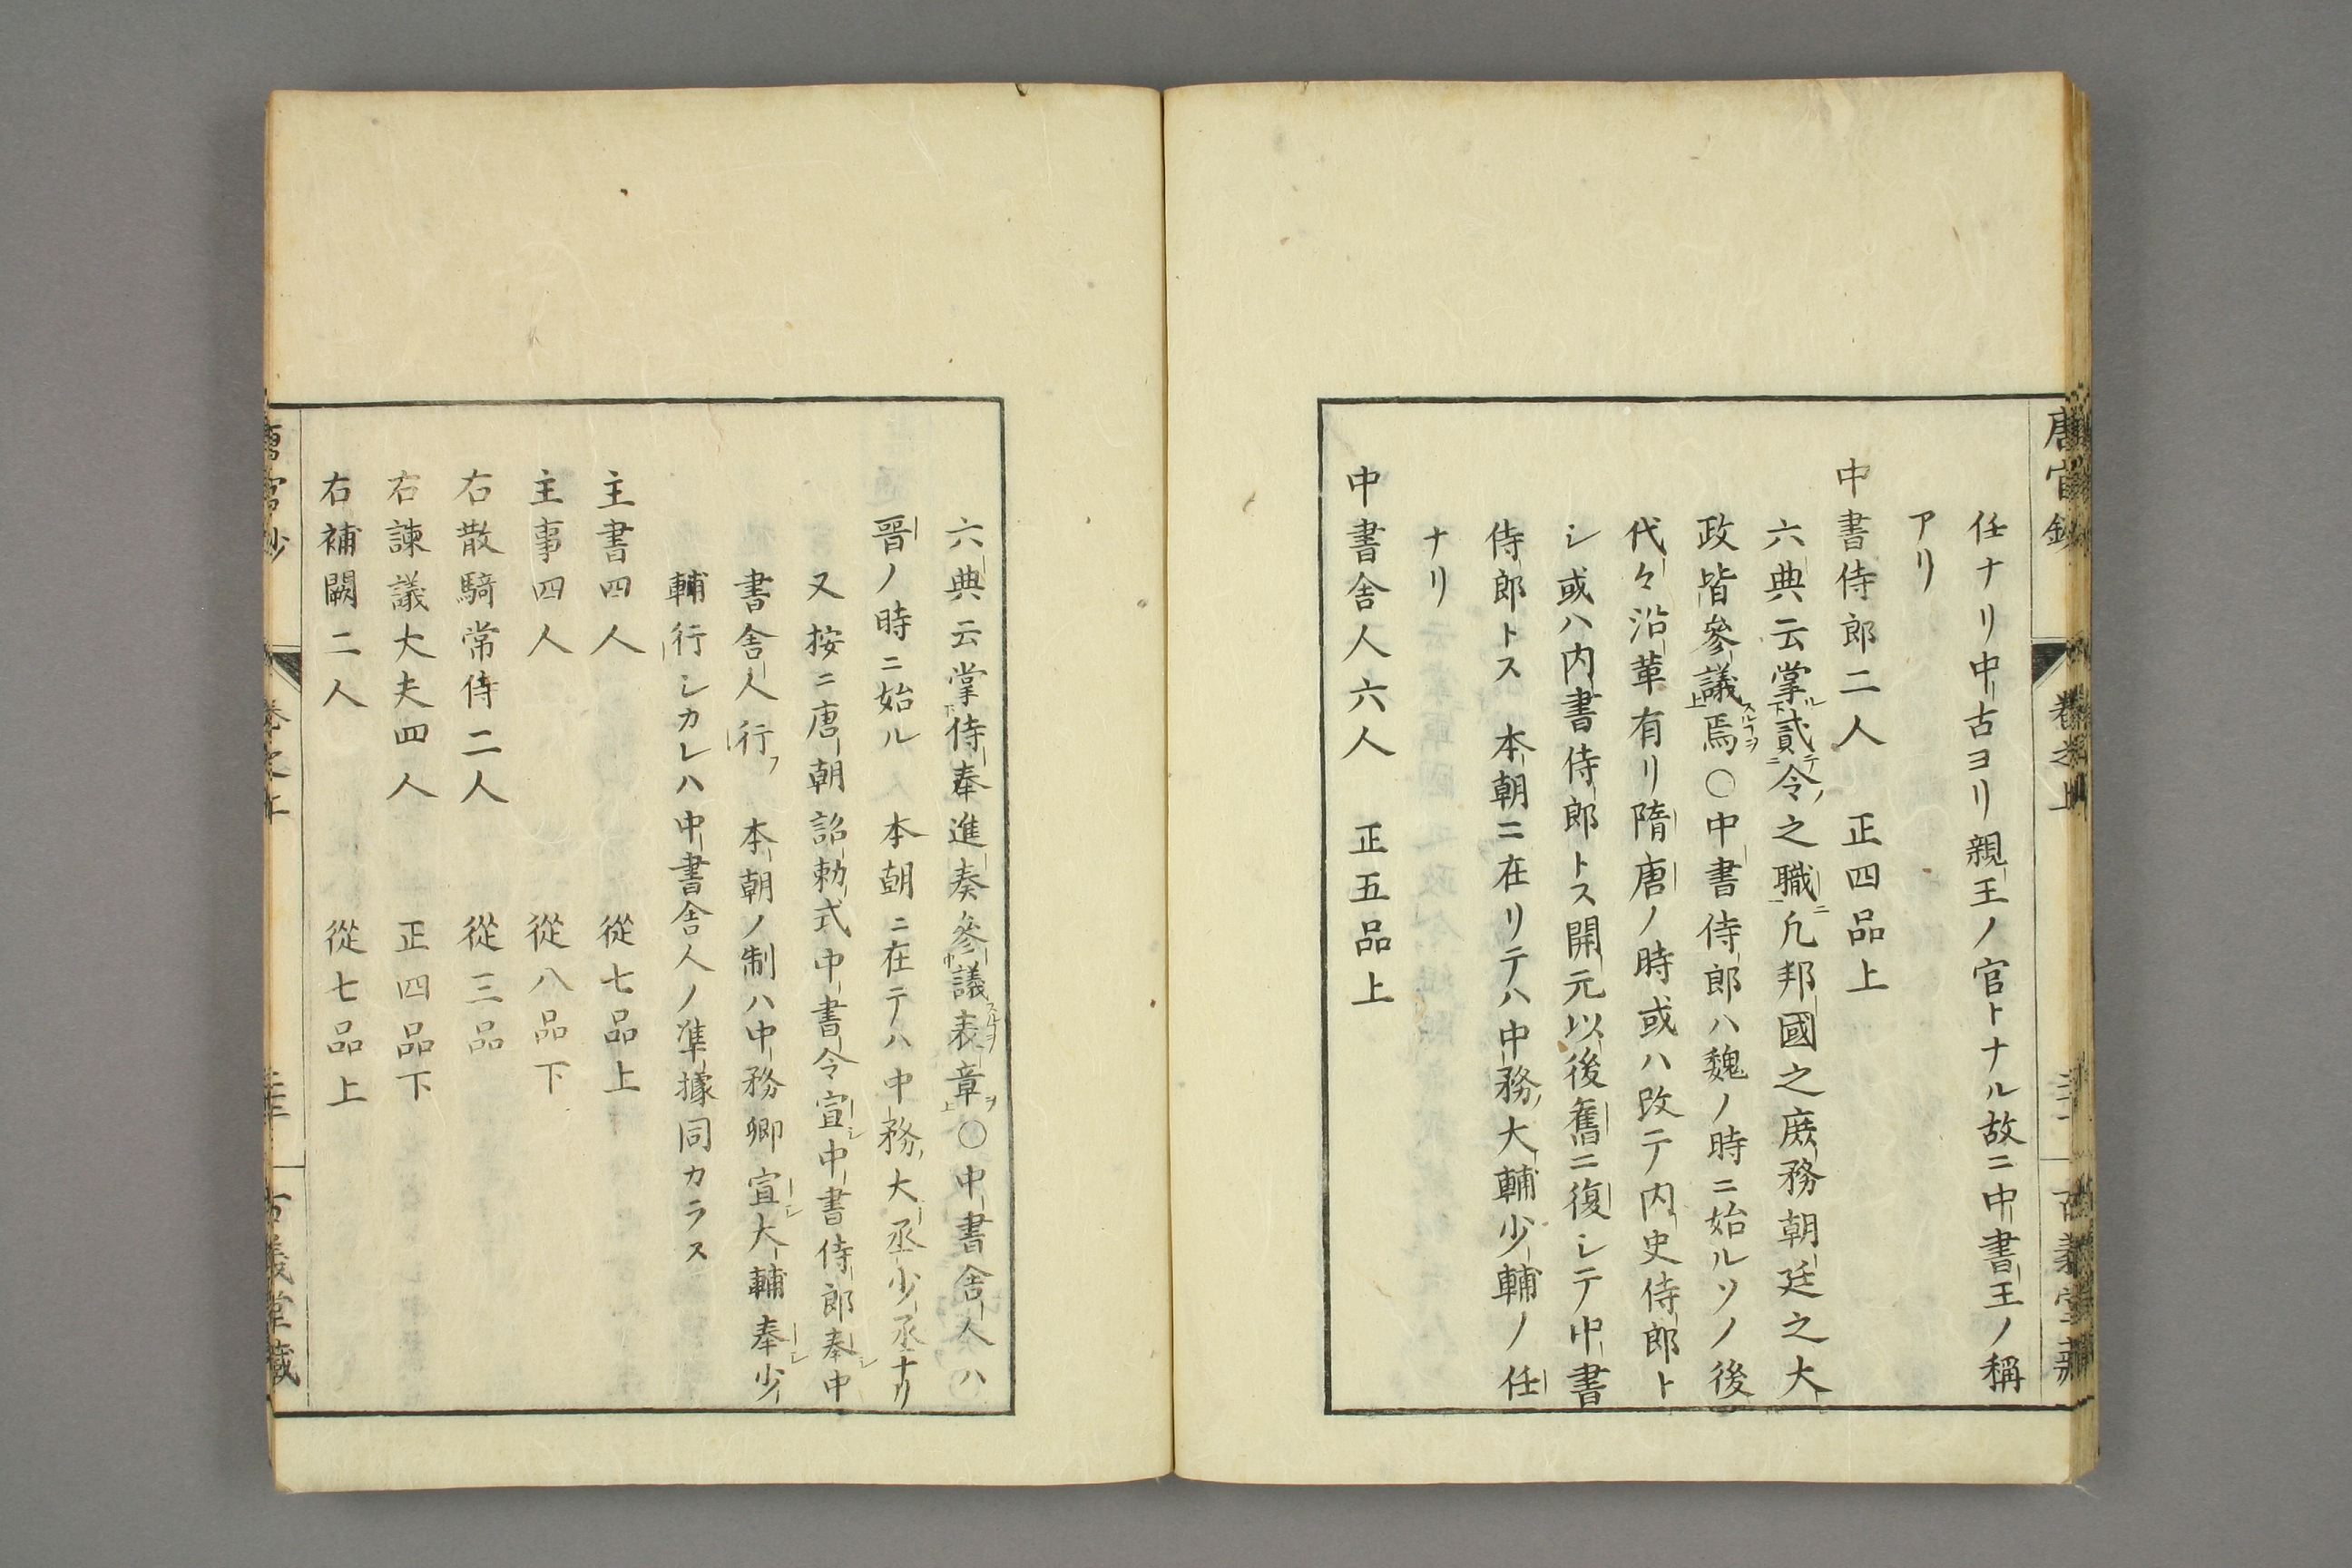 唐官鈔 卷之上 古義堂藏
任ナリ中古ヨリ親王ノ官トナル故ニ中書王ノ稱
アリ
中書侍郎二人 正四品上
六典云掌ル下貳テニ令ノ之職ニ一凢邦國之庶務朝廷之大
政皆參議上焉スルヿヲ○中書侍郎ハ魏ノ時ニ始ルソノ後
代々沿革有リ隋唐ノ時或ハ改テ内史侍郎ト
シ或ハ内書侍郎トス開元以後舊ニ復シテ中書
侍郎トス 本朝ニ在リテハ中務ノ大輔少輔ノ任
ナリ
中書舍人六人 正五品上
六典云掌下侍奉進奏參中議スルヿヲ表章ヲ上○中書舍人ハ
晋ノ時ニ始ル 本朝ニ在テハ中務ノ大丞少丞ナリ
又按ニ唐朝詔勅式中書令宣シ中書侍郎奉シ中
書舍人行フ 本朝ノ制ハ中務卿宣シ大輔奉シ少
輔行シカレハ中書舍人ノ準據同カラス
主書四人 從七品上
主事四人 從八品下
右散騎常侍二人 從三品
右諫議大夫四人 正四品下
右補闕二人 從七品上
唐官鈔 卷之上 古義堂藏